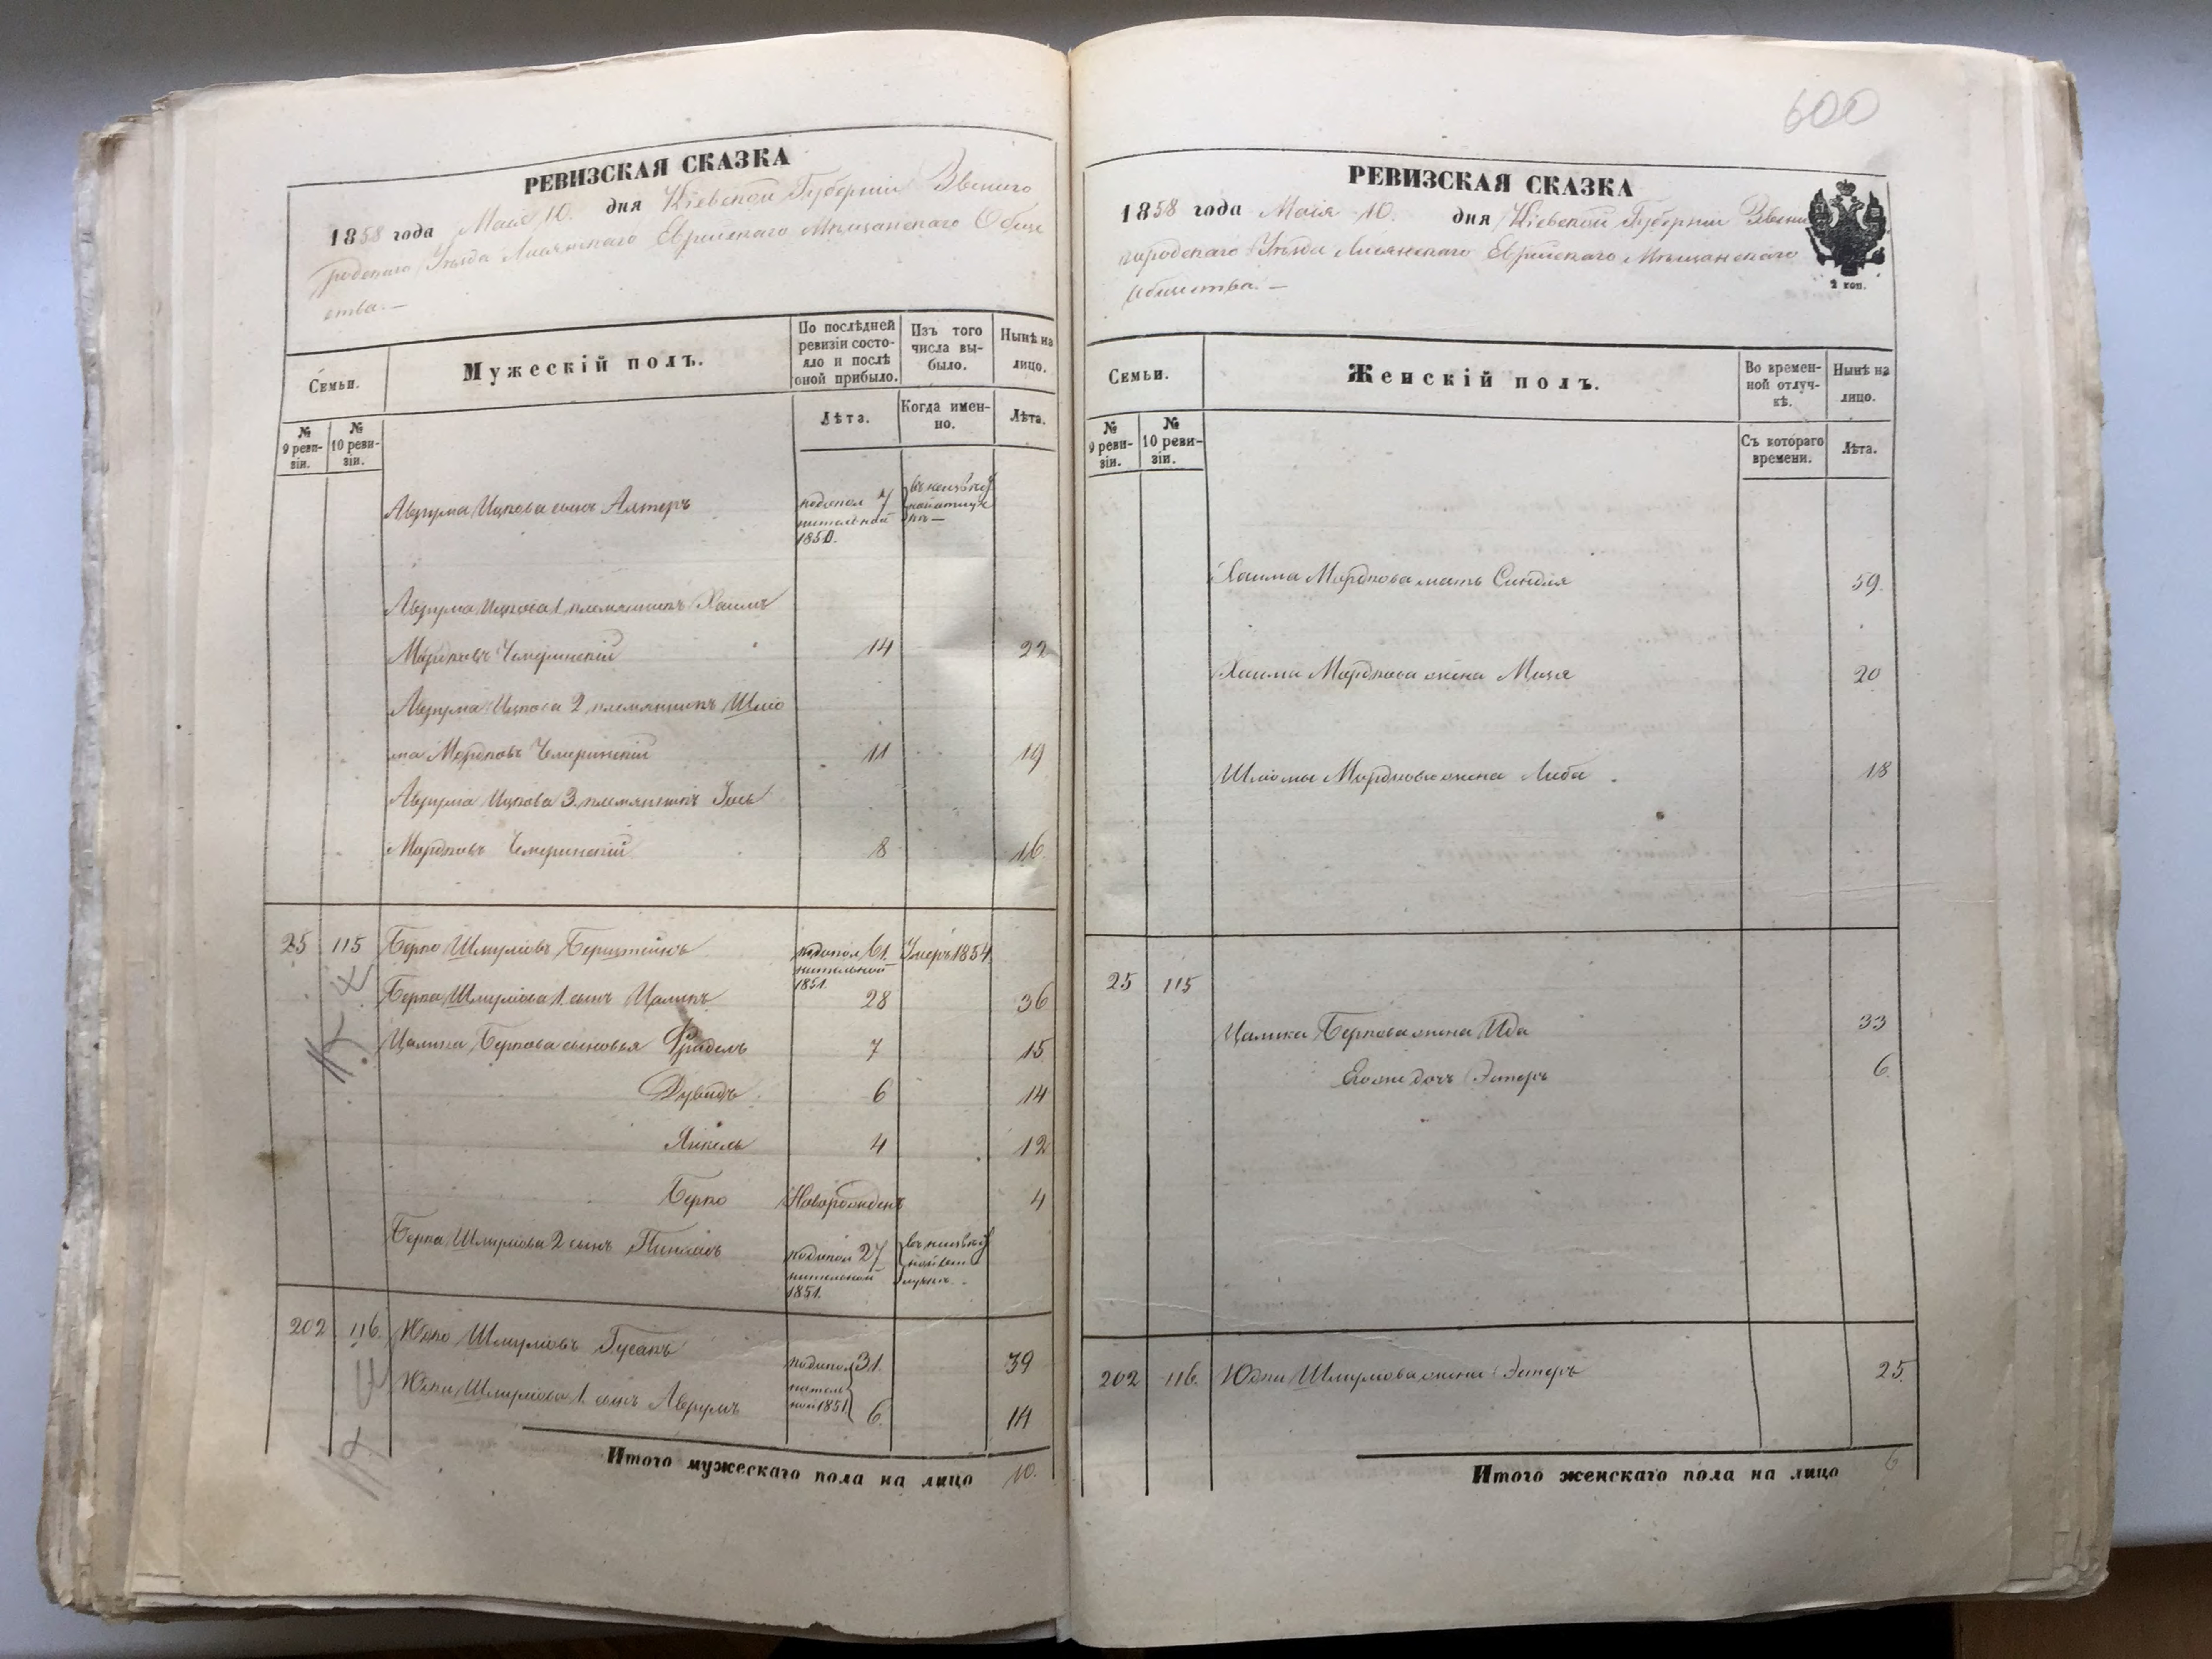 РЕВИЗСКАЯ СКАЗКА
1858 года Маія 10. дня Кіевской Губерніи Звениго
родскаго Уѣзда Лисянскаго Еврейскаго Мѣщанскаго Обще
ства. —
Семьи.
Мужескій полъ.
По послѣдней ревизіи состояло и послѣ оной прибыло.
Изъ того числа выбыло.
Нынѣ на лицо.
№ 9 ревизіи.
№ 10 ревизіи.
Лѣта.
Когда именно.
Лѣта.
Аврума Ицкова сынъ Алтеръ подопол 7
нительной
1850.
Аврума Ицкова 1 племянникъ Хаимъ
Мордковъ Чемеринскій 14 22
Аврума Ицкова 2 племянникъ Шлio
ма Мордковъ Чемеринскій 11 19
Аврума Ицкова 3 племянникъ Іось
Мордковъ Чемеринскій 8 16
25 115 Берко Шмуліовъ Берштейнъ подопол 61. Умеръ 1854.
нительной
1851.
Берка Шмуліова 1. сынъ Цаликъ 28 36
Цалика Беркова сыновья Фрадель 7 15
Дувидъ 6 14
Янкель 4 12
Берко Новорожденъ 4
Берка Шмуліова 2 сынъ Пинхасъ подопол 27
нительной
1851.
202 116. Юдко Шмуліовъ Гусакъ подопол 31. 39
Юдки Шмуліова 1. сынъ Аврумъ нитель
ной 1851 6. 14
Итого мужескаго пола на лицо 10.
600
РЕВИЗСКАЯ СКАЗКА
1858 года Маія 10. дня Кіевской Губерніи Звени
городскаго Уѣзда Лисянскаго Еврейскаго Мѣщанскаго
Общества. —
2 коп.
Семьи.
Женскій полъ.
Во временной отлучкѣ.
Нынѣ на лицо.
№ 9 ревизіи.
№ 10 ревизіи.
Съ котораго времени.
Лѣта.
Хаима Мордкова мать Синдля 59.
Хаима Мордкова жена Моця 20
Шліомы Мордкова жена Либа 18
25 115
Цалика Беркова жена Ида 33
Его же дочь Эстеръ 6.
202 116. Юдки Шмуліова жена Эстеръ 25.
Итого женскаго пола на лицо 6